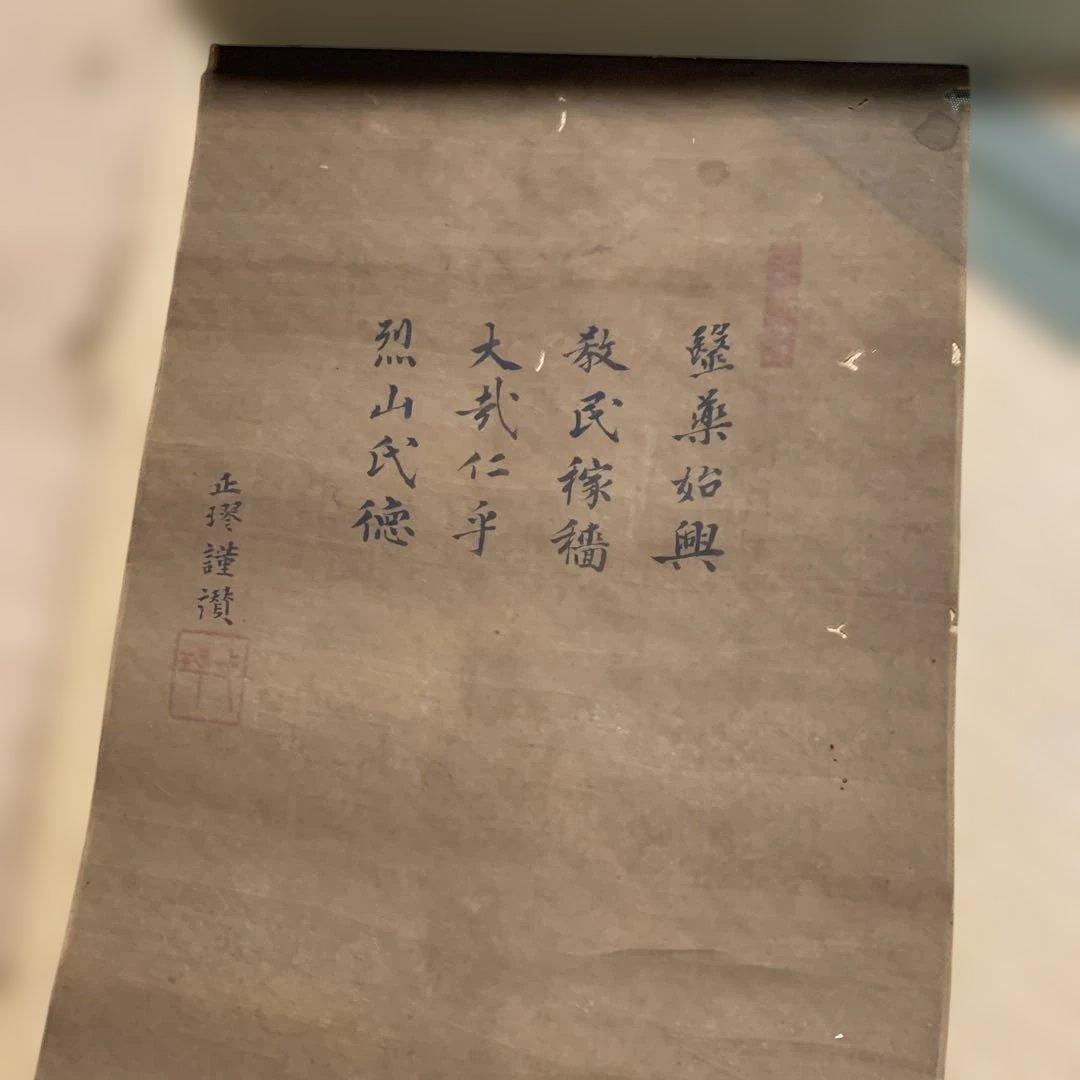 毉藥始興
教民稼穡
大哉仁乎
烈山氏德
正璆謹讃